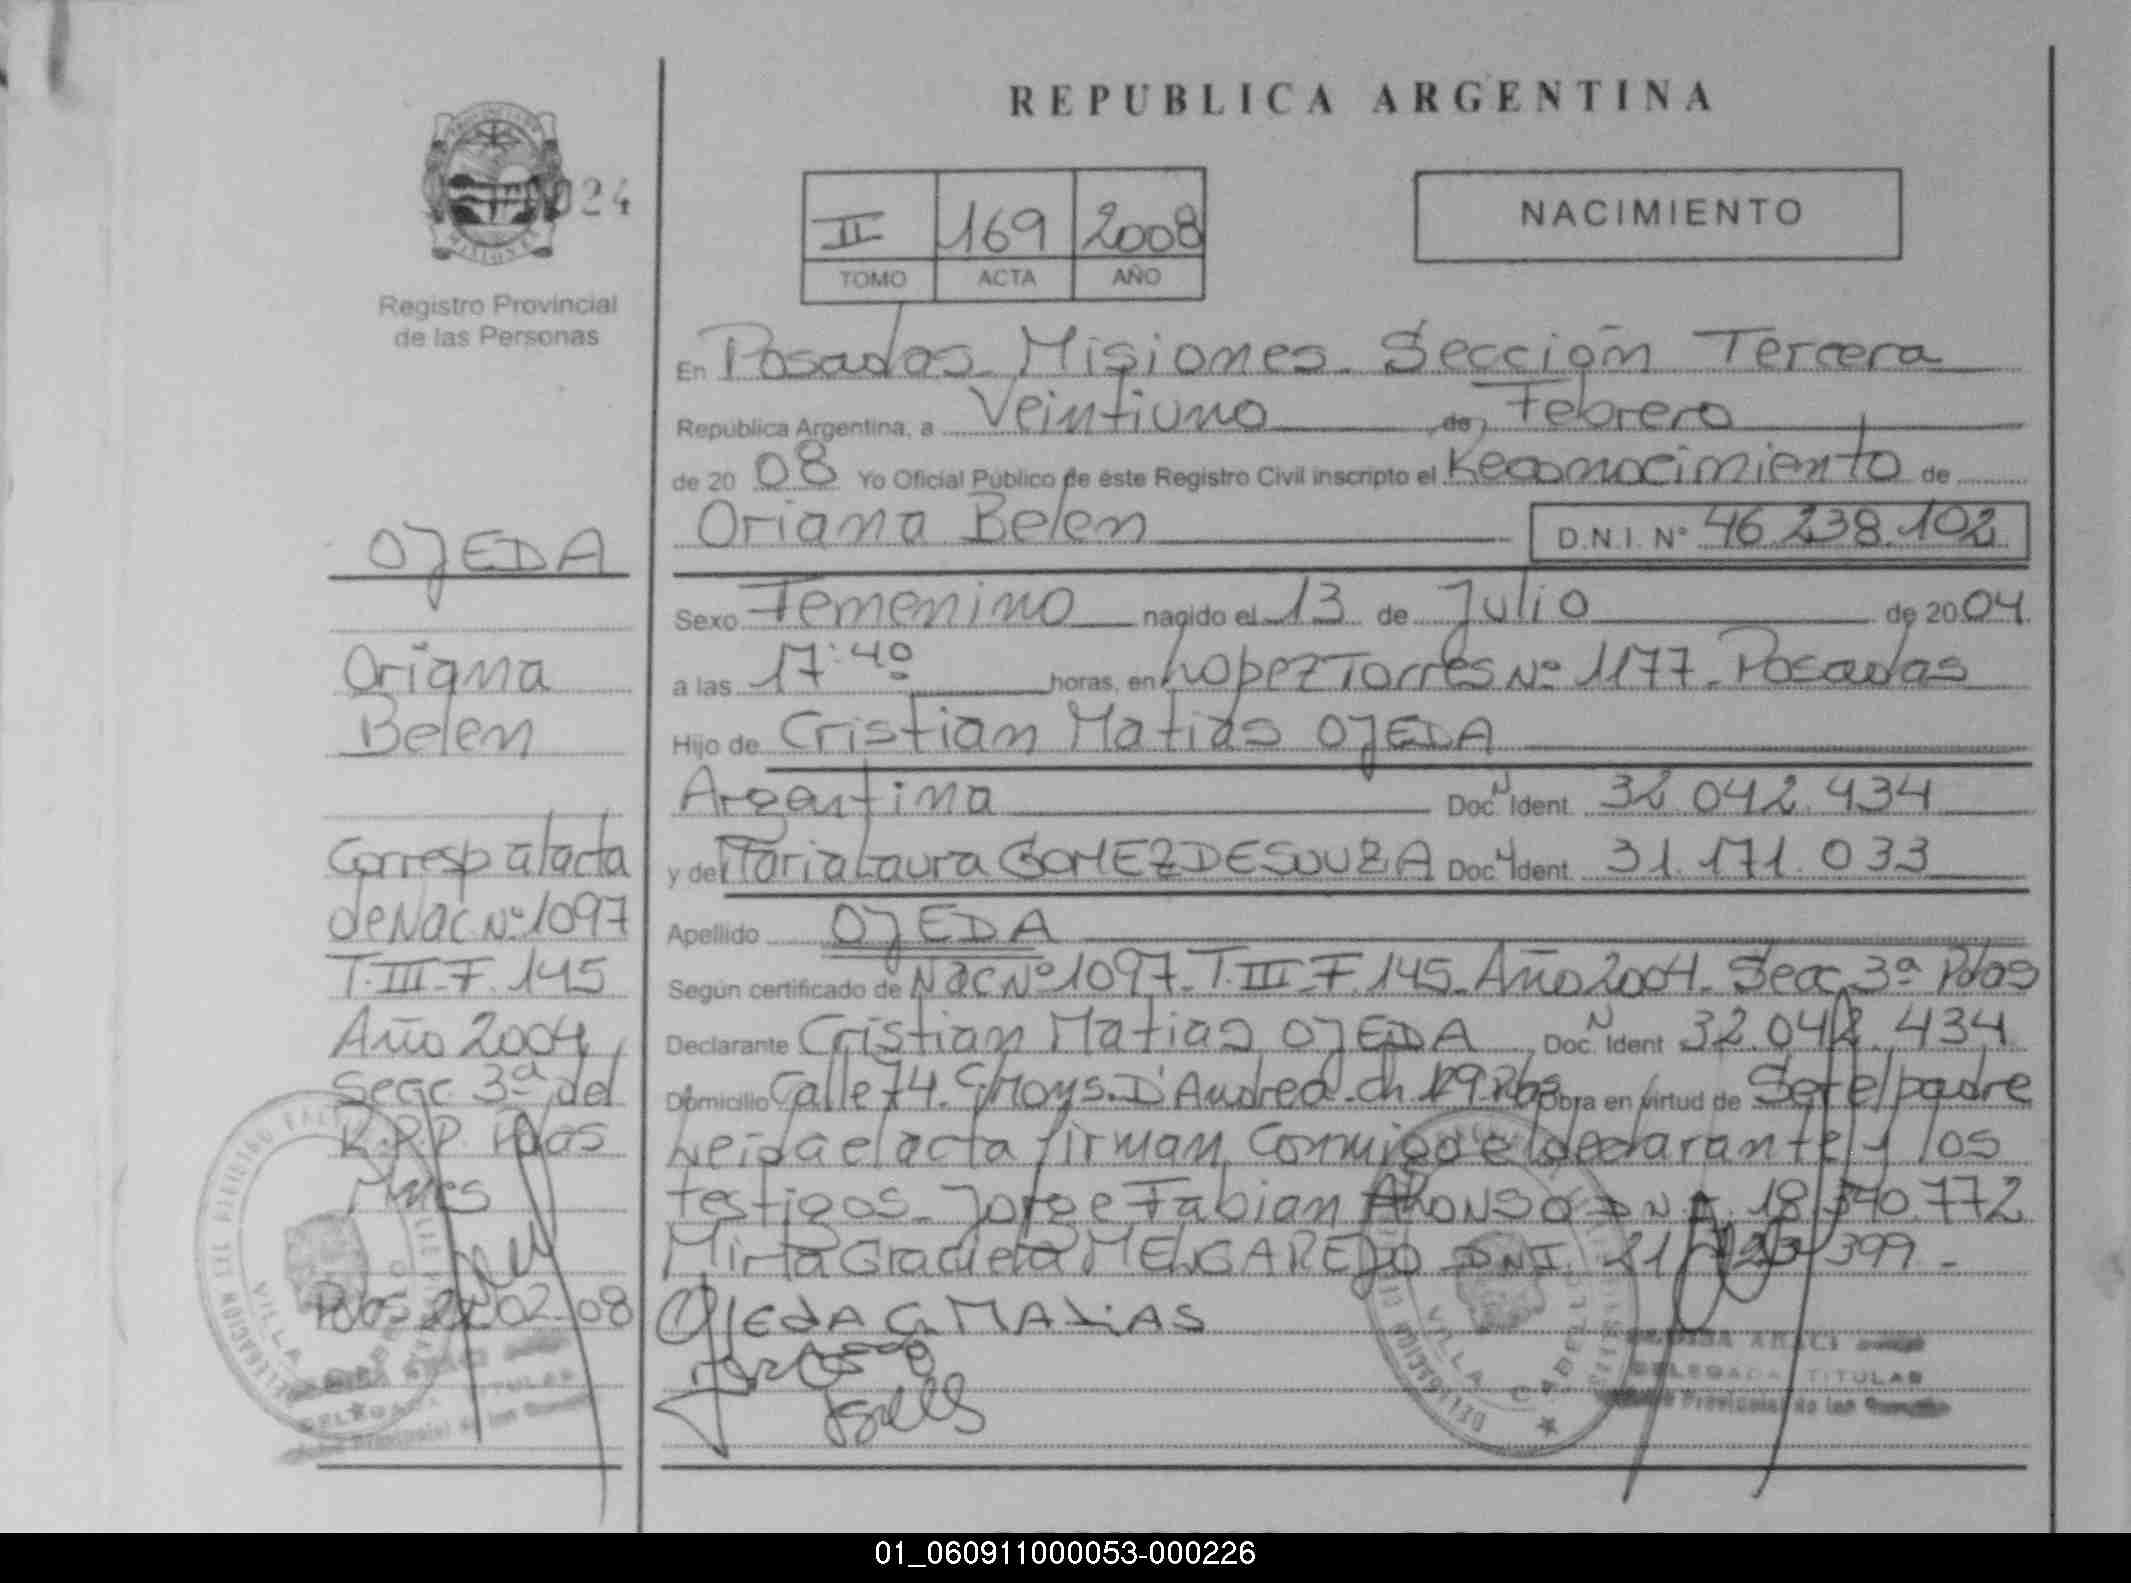 REPUBLICA ARGENTINA
024
Registro Provincial
de las Personas
II 169 2008
TOMO ACTA AÑO
NACIMIENTO
En Posadas Misiones Sección Tercera
República Argentina, a Veintiuno de Febrero
de 20 08 Yo Oficial Público de éste Registro Civil inscripto el Reconocimiento de
Oriana Belen D.N.I. Nº 46.238.102
Sexo Femenino nacido el 13 de Julio de 2004.
a las 17:40 horas, en Lopez Torres Nº 1177 - Posadas
Hijo de Cristian Matias OJEDA
Argentina Doc. Ident. 32.042.434
y de Maria Laura GOMEZ DE SOUZA Doc. Ident. 31.171.033
Apellido OJEDA
Según certificado de Nac Nº 1097 - T. III - F. 145 - Año 2004 - Secc 3ª Pdas
Declarante Cristian Matias OJEDA Doc. Ident 32.042.434
Domicilio Calle 74 Mons. D'Andrea - Ch Obra en virtud de Ser el padre
Leida el acta firman conmigo el declarante y los
testigos - Jorge Fabian ALONSO DNI. 18. 772
Mirta Graciela MELGAREJO DNI. 21 399 -
OJEDA C. MATIAS
OJEDA
Oriana
Belen
Corresp al acta
de Nac Nº 1097
T. III - F. 145
Año 2004
Secc 3ª del
R.P.P. Pdas
Mnes
Pdas 21-02-08
VILLA CABELLO
DELEGADA TITULAR
Provincial de las
VILLA CABELLO
DELEGADA TITULAR
Provincial de las
01_060911000053-000226